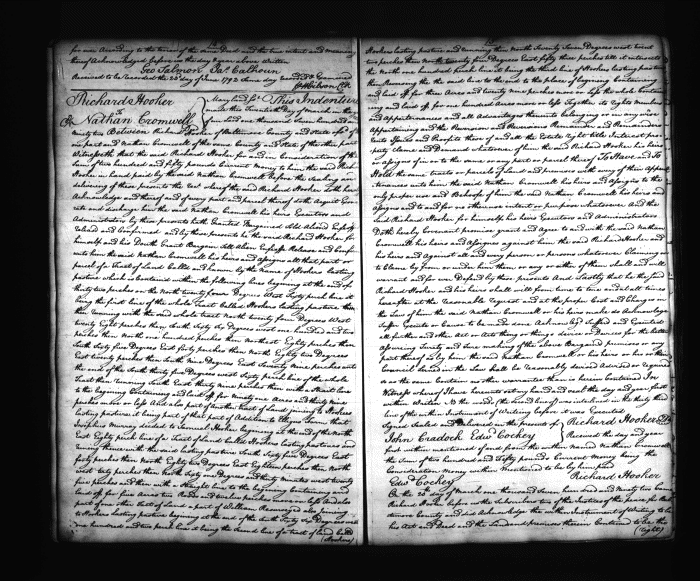 for ever According to the tenor of the same Deed and the true intent and meaning
thereof Acknowledged before us the day & year above written
Geo Salmon Jas Calhoun
Received to be recorded the 20th day of June 1792 same day recorded & Examined
Richard Hooker
To
Nathan Cromwell
This Indenture
made this Twentieth Day of March in the
year of our Lord one thousand Seven hundred and
ninety two Between Richard Hooker of Baltimore County and State of the
one part and Nathan Cromwell of the same County and State of the other part
Witnesseth that the said Richard Hooker for and in Consideration of the
sum of two hundred and fifty pounds Current money to him the said Richard
Hooker in hand paid by the said Nathan Cromwell before the sealing and
delivering of these presents the receipt whereof the said Richard Hooker doth hereby
Acknowledge and thereof and of every part and parcel thereof doth Acquit Exonerate
and discharge him the said Nathan Cromwell his heirs Executors and
Administrators by these presents hath Granted Bargained Sold Aliened Enfeoffed
Released and Confirmed and by these presents he the said Richard Hooker for
himself and his Doth Grant Bargain Sell Alien Enfeoff Release and Confirm
unto him the said Nathan Cromwell his heirs and assigns all that part or
parcel of a Tract of Land Called and known by the name of Hookers lasting
pasture which is Contained within the following lines beginning at the end of
thirty two perches on the North twenty four Degrees West forty perch line it
being the first line of the whole tract Called Hookers lasting pasture then
then running with the said whole tract North twenty four Degrees West
twenty Eight perches then South sixty six Degrees west one hundred and two
perches then North one hundred perches then Northeast Eighty perches then
South sixty five Degrees East forty perches then North Eighty two Degrees
East twenty perches then South nine Degrees East Seventy nine perches unto
the end of the South thirty five Degrees west sixty perch line of the whole
Tract then running South East thirty nine perches then with a Strait line
to the beginning Containing and laid off for ninety one Acres and thirty nine
perches more or less And also part of another tract of Land joining to Hookers
lasting pasture it being part of that part of Addition to Ellages farm that
Josephus Murray deeded to Samuel Hooker beginning at the end of the North
East Eighty perch line of a Tract of Land Called Hookers lasting pasture and
runing thence with the said lasting pasture South sixty five Degrees East
forty perches then North Eighty two Degrees East Eighteen perches then North
west forty perches then South sixty one Degrees and thirty minutes west twenty
five perches and then with a straight line to the beginning Containing and
laid off for five Acres two Roods and twelve perches more or less And also
part of one other Tract of Land a part of William Resurveyed also joining
to Hookers lasting pasture begining at the end of the South sixty six Degrees west
one hundred and two perch line it being the second line of a tract of land Called
(Hookers)
Hookers lasting pasture and running then North Seventy Seven Degrees west twent
perches then North twenty four Degrees East fifty perches then till it intersects
the North one hundred perch line it being the third line of Hookers lasting pasture
then runing with the said line to the end to the place of begining Containing
and laid off for three Acres and twenty perches more or less the whole Contain
ing and laid off for one hundred Acres more or less Together its rights Members
and Appurtenances and all Advantages thereunto belonging or in any wise
Appertaining and the Reversion and Reversions Remainder and Remainders
Rents Issues and Profits thereof and all the Estate right title Interest pro
perty claim and Demand whatsoever of him the said Richard Hooker his heirs
or assigns of in or to the same or any part or parcel thereof To Have and To
Hold the same tracts or parcels of Land and premises with every of their Appurt
enances unto him the said Nathan Cromwell his heirs and assigns to the
only proper use and Behoof of him the said Nathan Cromwell his heirs and
assigns and to and for no other use intent or purpose whatsoever And the
said Richard Hooker for himself his heirs Executors and Administrators
Doth hereby Covenant promise grant and Agree to and with the said Nathan
Cromwell his heirs and assigns against him the said Richard Hooker and
his heirs and Against all and every person or persons whatsoever Claiming or
to Claim by from or under him them or any or either of them shall and will
warrant and for ever Defend by these presents And lastly that he the said
Richard Hooker and his heirs shall will from time to time and at all times
hereafter at the reasonable request and at the proper Cost and Charges in
the Law of him the said Nathan Cromwell or his heirs make do Acknowledge
Suffer Execute or Cause to be made done Acknowledged Suffered and Executed
all further and other Act or Acts thing or things Deed or Devises for the better
assuring Trust and Sure making of the above Bargained premises or any
part thereof as by him the said Nathan Cromwell or his heirs or his or their
Council learned in the Law shall be reasonably devised Advised or required
so as the same Contain no other warrantee than is herein Contained In
Witness whereof I have hereunto set my hand and Seal the day and year first
above Written
line of the within Instrument of Writing before it was Executed
Signed Sealed and Delivered in the presents of Richard Hooker
John Cradock Edwd Cockey Received the day and year
first within mentioned of and from the within Named Nathan Cromwell
the sum of two hundred and fifty pounds Current money being the
Consideration Money within mentioned to be by him paid
Edwd Cockey Richard Hooker
On the 20th day of March one thousand Seven hundred and Ninety two Came
Richard Hooker before us the Subscribers two of the Justices of the peace for Balt
timore County and did Acknowledge the within Instrument of Writing to be
his Act and Deed and the Land and premises therein Contained to be the
(Right)